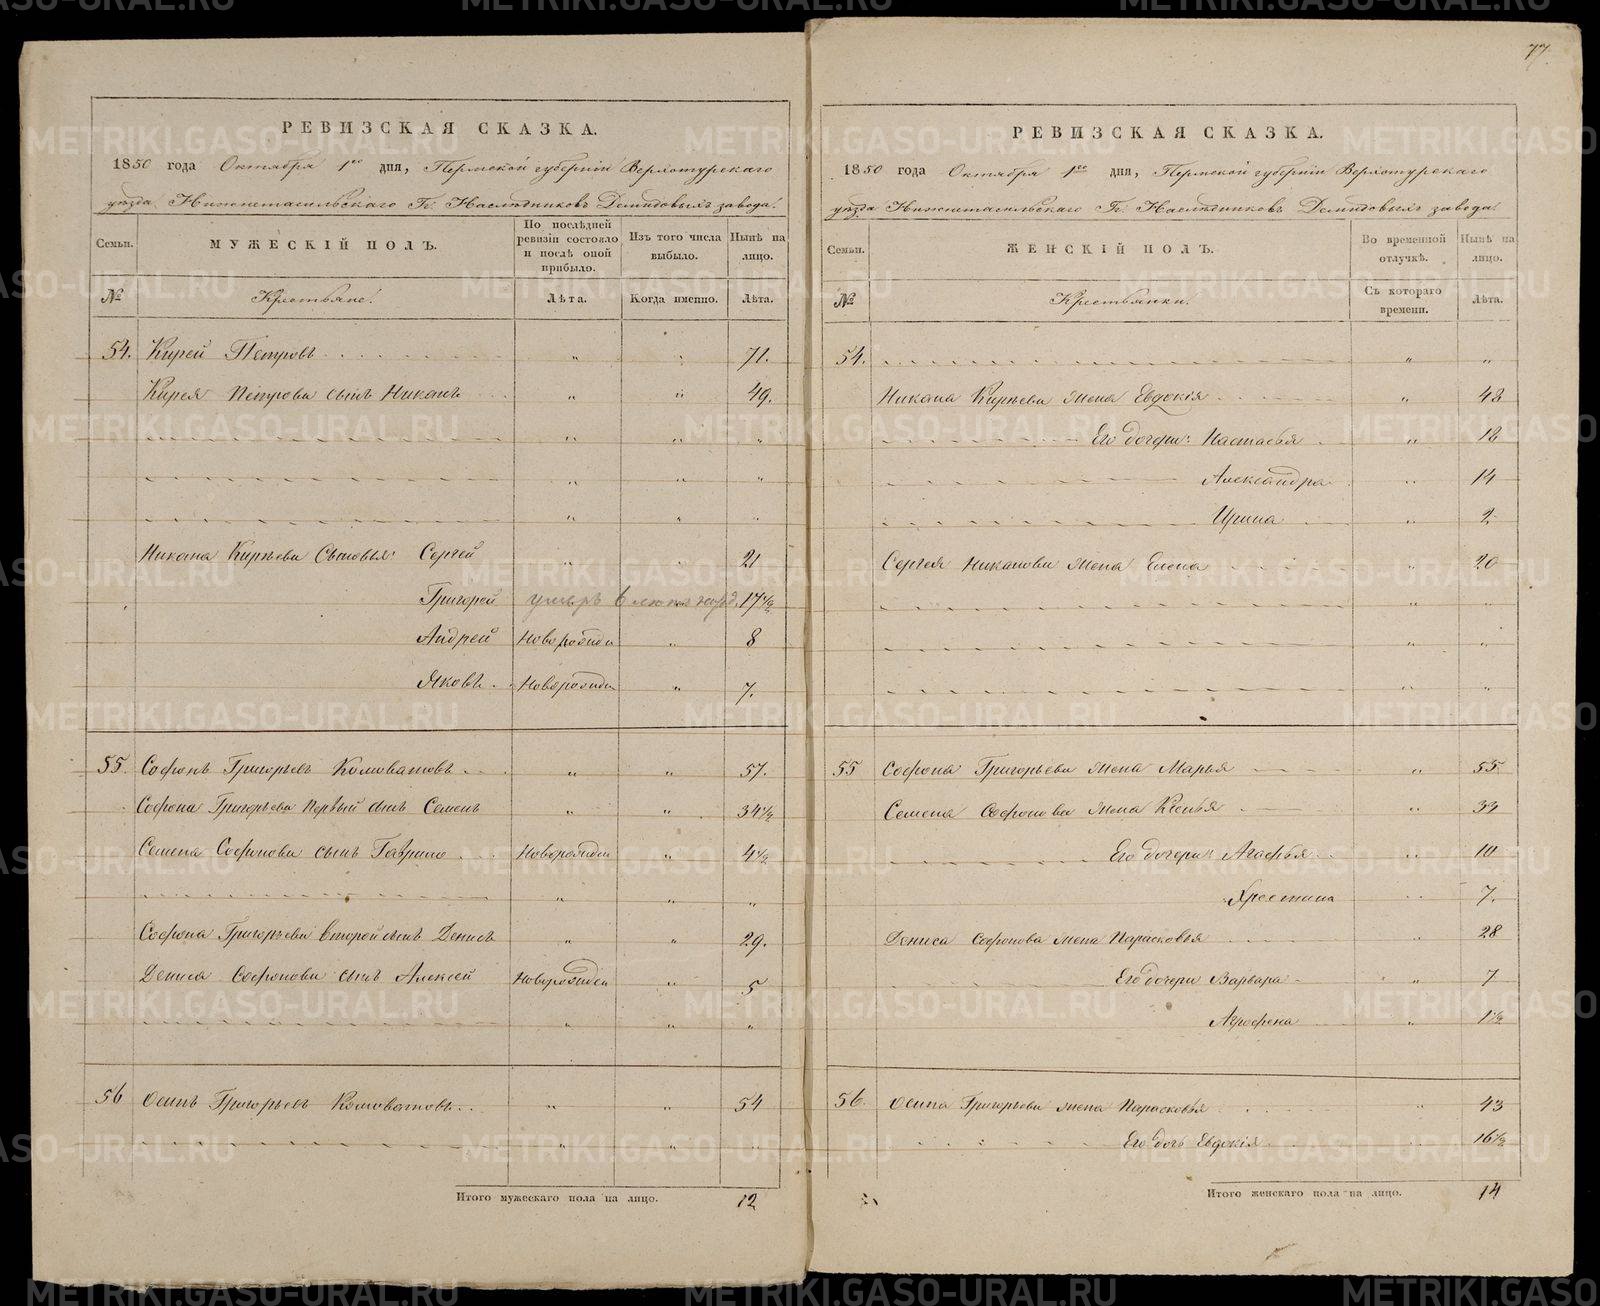 РЕВИЗСКАЯ СКАЗКА.
1850 года Октября 1го дня, Пермской губернии Верхотурскаго
уѣзда Нижнетагильскаго Гг. Наслѣдниковъ Демидовыхъ завода.
Семьи.
МУЖЕСКІЙ ПОЛЪ.
По послѣдней ревизіи состояло и послѣ оной прибыло.
Изъ того числа выбыло.
Нынѣ на лицо.
№
Крестьяне.
Лѣта.
Когда именно.
Лѣта.
54. Кирей Петровъ 71.
Кирея Петрова сынъ Никанъ 49.
Никана Кирѣева Сыновья: Сергей 21
Григорей умеръ 17½
Андрей Новорожден 8
Яковъ Новорожден 7.
55. Софонъ Григорьевъ Коловатовъ 57.
Софона Григорьева Первый сынъ Семенъ 34½
Семена Софонова сынъ Гаврило Новорожден 4½
Софона Григорьева второй сынъ Денисъ 29.
Дениса Софонова сынъ Алексей Новорожден 5
56 Осипъ Григорьевъ Коловатовъ 54
Итого мужескаго пола на лицо. 12
77.
РЕВИЗСКАЯ СКАЗКА.
1850 года Октября 1го дня, Пермской губернии Верхотурскаго
уѣзда Нижнетагильскаго Гг. Наслѣдниковъ Демидовыхъ завода.
Семьи.
ЖЕНСКІЙ ПОЛЪ.
Во временной отлучкѣ.
Нынѣ на лицо.
№
Крестьянки.
Съ котораго времени.
Лѣта.
54.
Никана Кирѣева жена Евдокія 48
Его дочери: Настасья 18
Александра 14
Ирина 2
Сергея Никанова жена Елена 20
55 Софона Григорьева жена Марья 55
Семена Софонова жена Ксенья 33
Его дочери: Агафья 10
Хрестина 7.
Дениса Софонова жена Парасковья 28
Его дочери Варвара 7
Агрофена 1½
56. Осипа Григорьева жена Парасковья 43
Его дочь Евдокія 16½
Итого женскаго пола на лицо. 14
METRIKI.GASO-URAL.RU